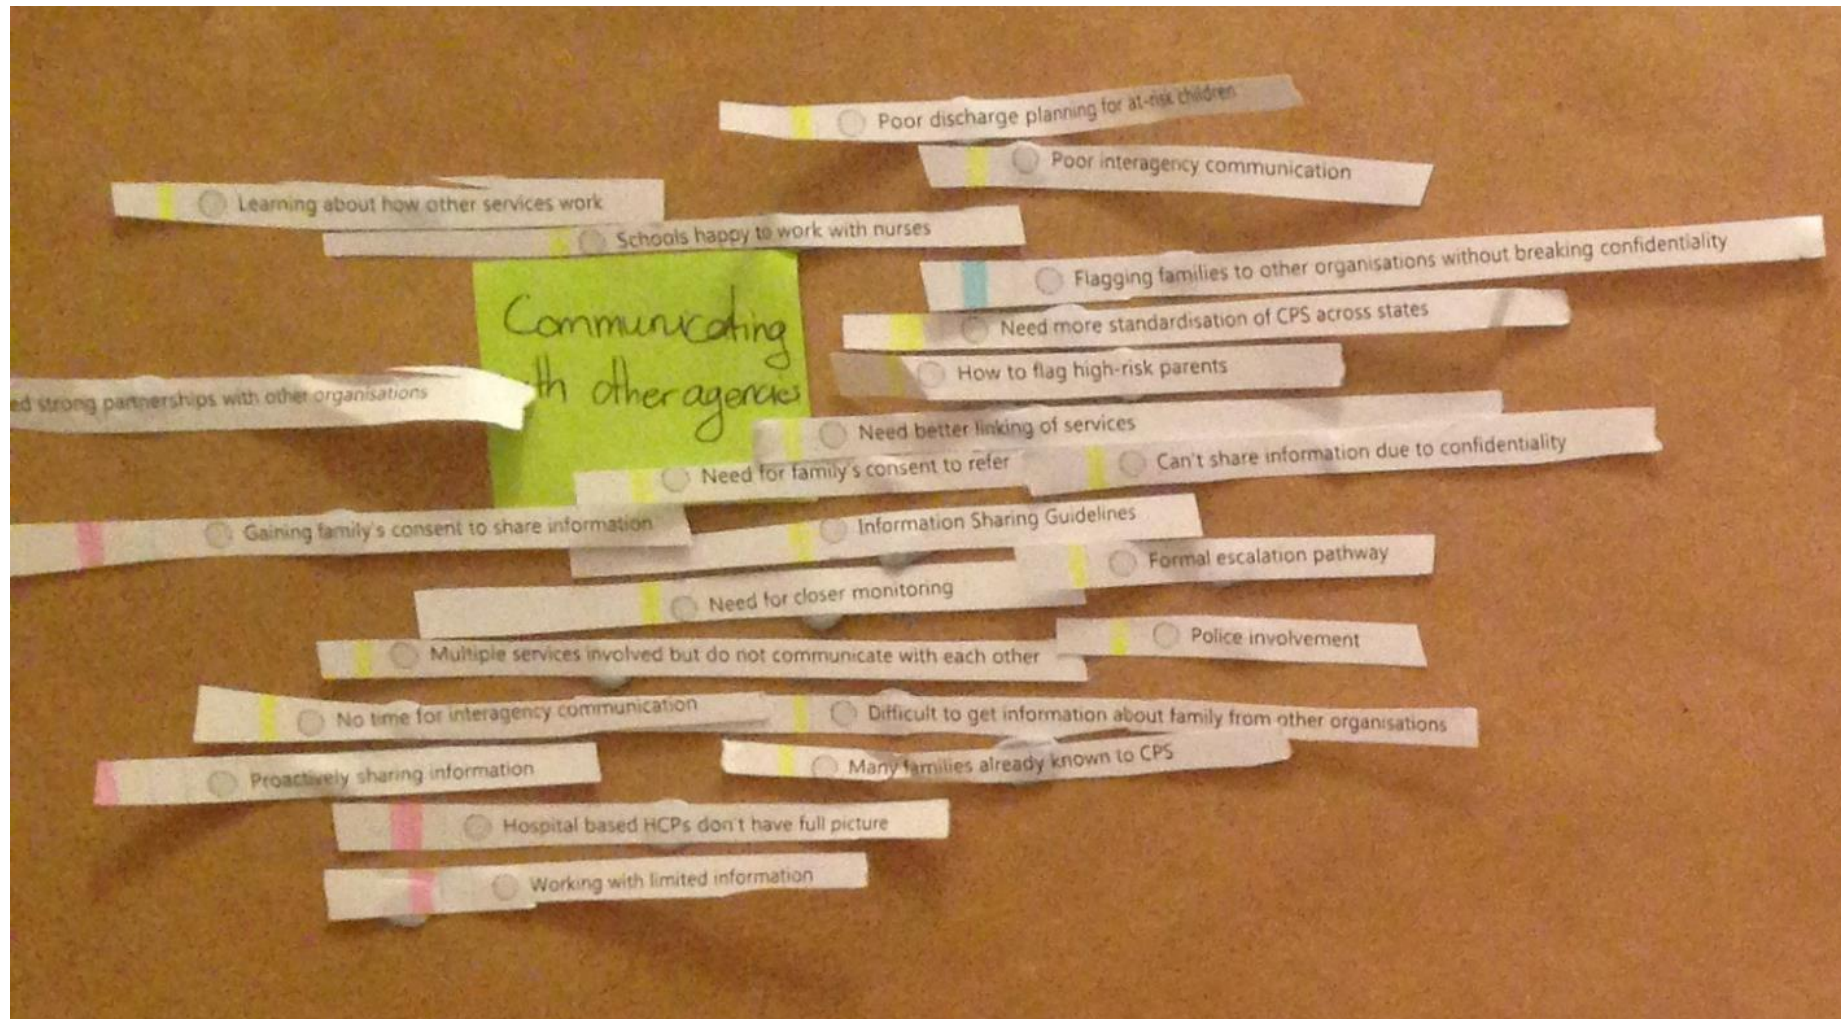 Poor discharge planning for at-risk children
Poor interagency communication
Learning about how other services work
Schools happy to work with nurses
Flagging families to other organisations without breaking confidentiality
Communicating
th other agencies
Need more standardisation of CPS across states
How to flag high-risk parents
ed strong partnerships with other organisations
Need better linking of services
Need for family's consent to refer
Can't share information due to confidentiality
Gaining family's consent to share information
Information Sharing Guidelines
Formal escalation pathway
Need for closer monitoring
Police involvement
Multiple services involved but do not communicate with each other
No time for interagency communication
Difficult to get information about family from other organisations
Proactively sharing information
Many families already known to CPS
Hospital based HCPs don't have full picture
Working with limited information